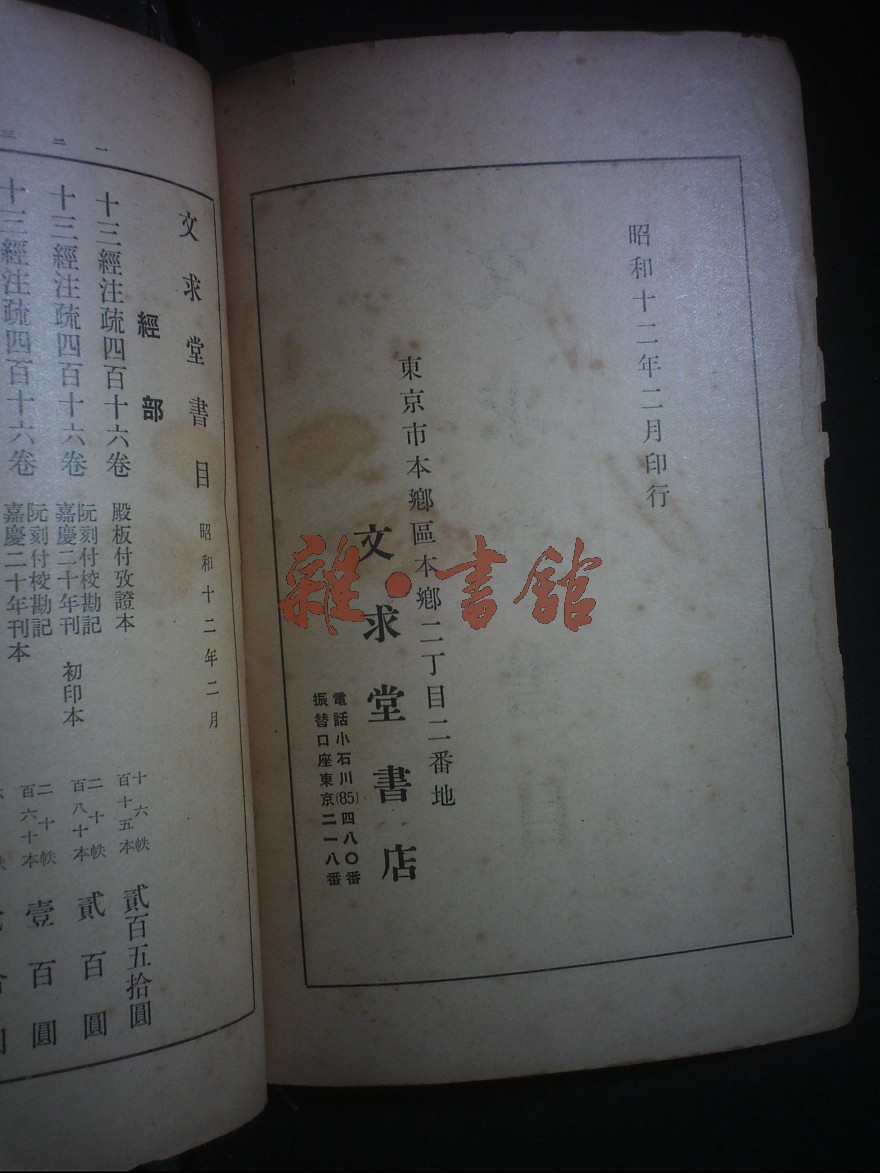 昭和十二年二月印行
東京市本鄕區本鄕二丁目二番地
文求堂書店
電話小石川(85)四八〇番
振替口座東京二一八番
雜·書館
文求堂書目 昭和十二年二月
經部
一 十三經注疏四百十六卷 殿板付攷證本 十六帙 百十五本 貳百五拾圓
二 十三經注疏四百十六卷 阮刻付校勘記 嘉慶二十年刊 初印本 二十帙 百八十本 貳百圓
三 十三經注疏四百十六卷 阮刻付校勘記 嘉慶二十年刊本 二十帙 百六十本 壹百圓